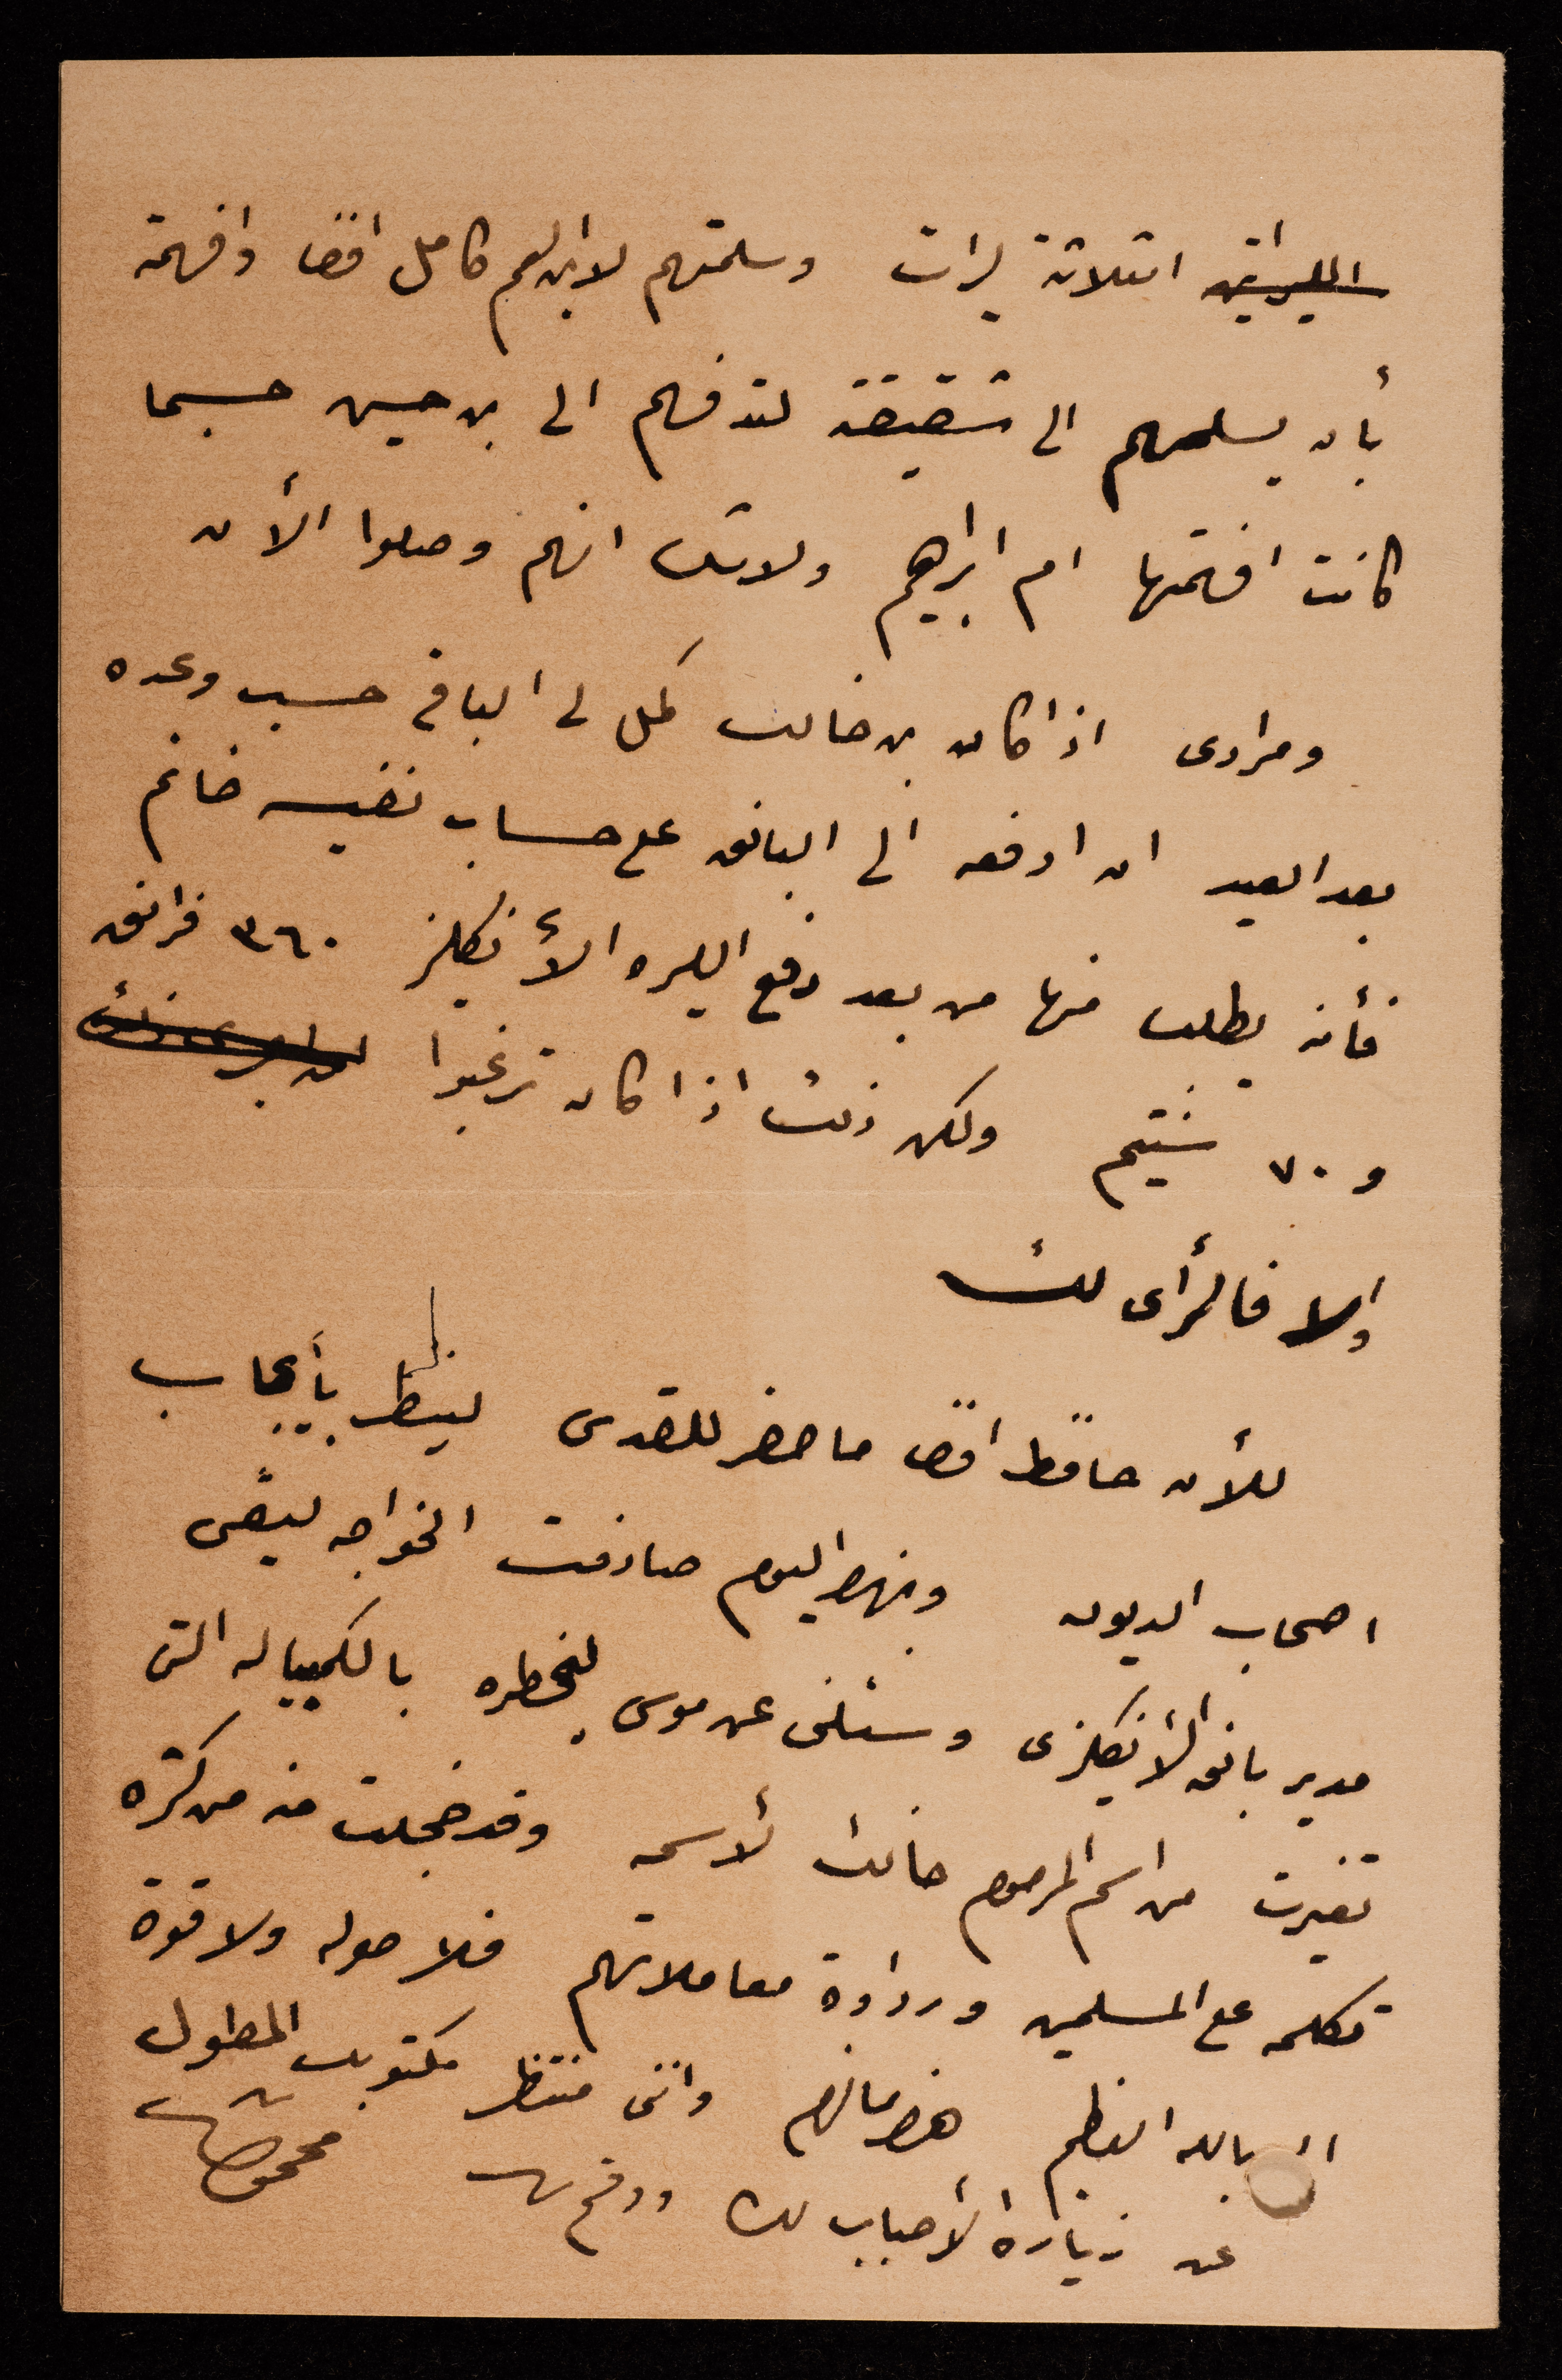 الليراتين اثلاثة ليرات وسلمتهم لابن العم كامل افندي وافهمته
بأن يسلمهم الى شقيقته لتدفعهم الى بن حسين حسبما
كانت افهمتها ام ابراهيم ولا شك انهم وصلوا الأن
ومرادى اذا كان بن خالك كمل لى الباقى حسب وعده
بعد العيد ان ادفعه الى البانق على حساب نفيسه خانم
فأنه يطلب منها من بعد دفع الليره الأنكليز ٣٦٠ فرانق
و ٧٠ سنتيم ولكن ذلك اذا كان ترغبوا
والا فالرأى لك
للأن حافظ افندي ما حضر للقدس لينظر بأيجاب
اصحاب الديون وبهذا اليوم صادفت الخواجه ليفى
مدير بانق الأنكليزى وسئلنى عن موسى ليخطره بالكمبياله التى
تغيرت من اسم المرحوم خالك لأسمه وقد خجلت منه من كثرة
تكلمه على المسلمين ورداوة معاملاتهم فلا حول ولا قوة
الا بالله العظيم هذا مالهم واننى منتظر مكتوبك المطول
عن زيارة الأحباب لك ودمتم